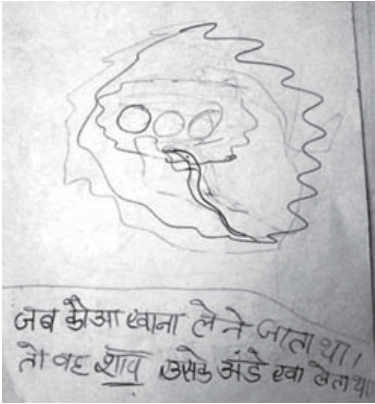 जब कौआ खाना लेने जाता था।
तो वह शाप उसके अंडे खा लेता था